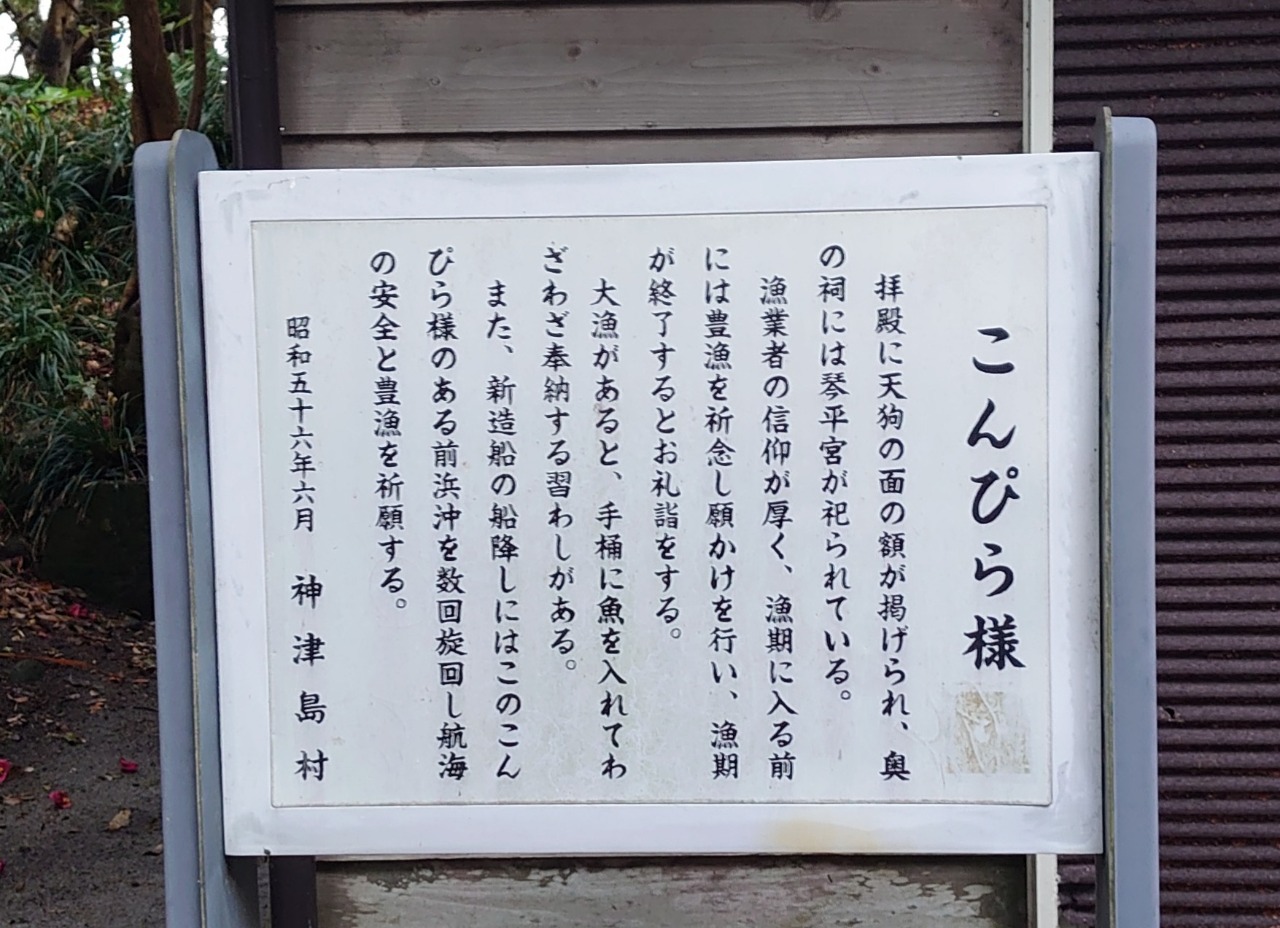 こんぴら様
拝殿に天狗の面の額が掲げられ、奥
の祠には琴平宮が祀られている。
漁業者の信仰が厚く、漁期に入る前
には豊漁を祈念し願かけを行い、漁期
が終了するとお礼詣をする。
大漁があると、手桶に魚を入れてわ
ざわざ奉納する習わしがある。
また、新造船の船降しにはこのこん
ぴら様のある前浜沖を数回旋回し航海
の安全と豊漁を祈願する。
昭和五十六年六月 神津島村